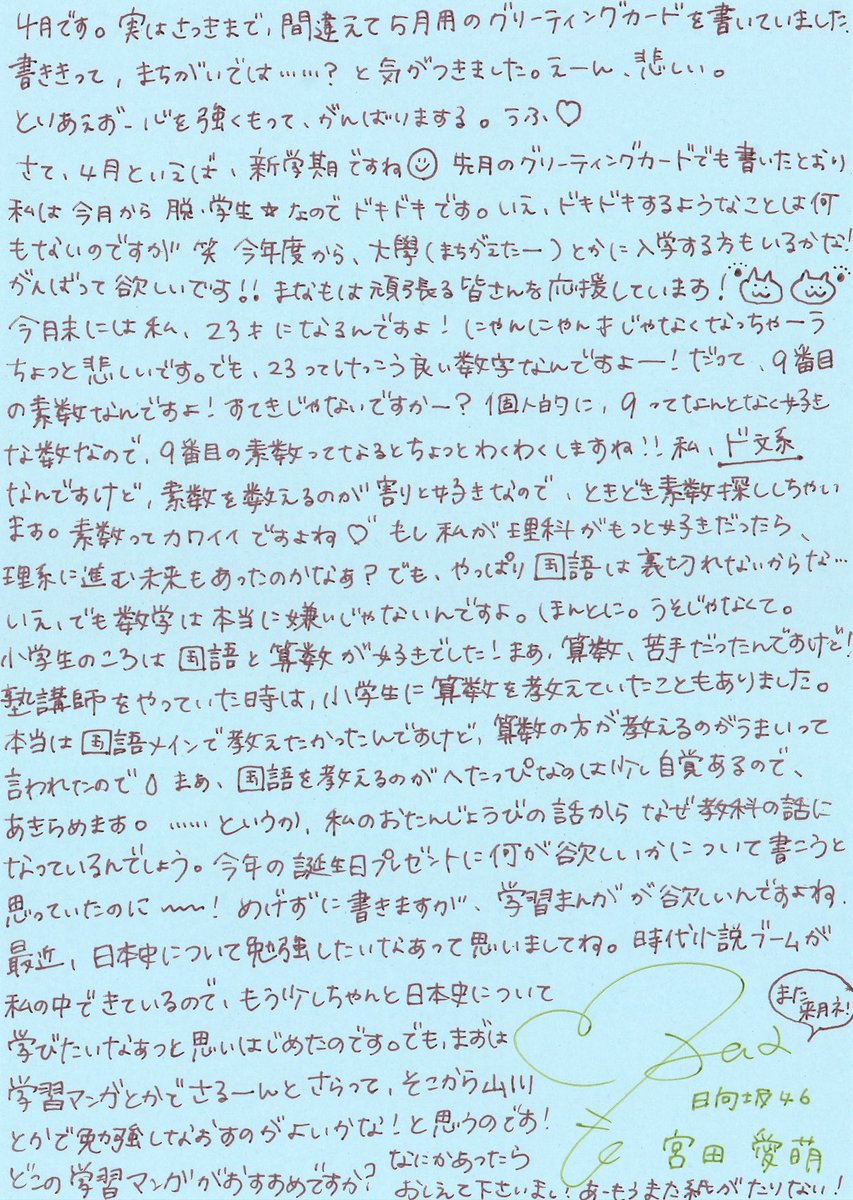 4月です。実はさっきまで、間違えて5月用のグリーティングカードを書いていました。
書ききって、まちがいでは……？と気がつきました。えーん、悲しい。
とりあえず一心を強くもって、がんばりまする。うふ♡
さて、4月といえば、新学期ですね☺ 先月のグリーティングカードでも書いたとおり
私は今月から脱・学生☆なのでドキドキです。いえ、ドキドキするようなことは何
もないのですが 笑 今年度から、大學(まちがえたー)とかに入学する方もいるかな!
がんばって欲しいです!! まなもは頑張る皆さんを応援しています!
今月末には私、23才になるんですよ! にゃんにゃん才じゃなくなっちゃーう
ちょっと悲しいです。でも、23ってけっこう良い数字なんですよー! だって、9番目
の素数なんですよ! すてきじゃないですかー? 個人的に、9ってなんとなく好き
な数なので、9番目の素数ってなるとちょっとわくわくしますね!! 私、ド文系
なんですけど、素数を数えるのが割と好きなので、ときどき素数探ししちゃい
ます。素数ってカワイイですよね♡ もし私が理科がもっと好きだったら、
理系に進む未来もあったのかなぁ? でも、やっぱり国語は裏切れないからな…
いえ、でも数学は本当に嫌いじゃないんですよ。ほんとに。うそじゃなくて。
小学生のころは国語と算数が好きでした! まあ、算数、苦手だったんですけど!
塾講師をやっていた時は、小学生に算数を教えていたこともありました。
本当は国語メインで教えたかったんですけど、算数の方が教えるのがうまいって
言われたので まあ、国語を教えるのがへたっぴなのは少し自覚あるので、
あきらめます。……というか、私のおたんじょうびの話からなぜ教科の話に
なっているんでしょう。今年の誕生日プレゼントに何が欲しいかについて書こうと
思っていたのに〜〜! めげずに書きますが、学習まんがが欲しいんですよね。
最近、日本史について勉強したいなあって思いましてね。時代小説ブームが
私の中できているので、もう少しちゃんと日本史について
学びたいなあっと思いはじめたのです。でも、まずは
学習マンガとかでさるーんとさらって、そこから山川
とかで勉強しなおすのがよいかな! と思うのです!
どこの学習マンガがおすすめですか? なにかあったら
おしえて下さいまし! あーもうまた紙がたりない!
また
来月ネ!
日向坂46
宮田 愛萌